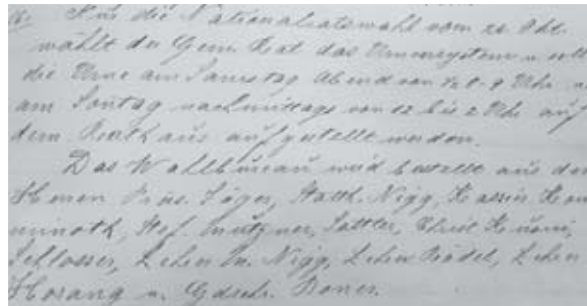 Für die Nationalratswahl vom 28. Okt.
wählt der Gem. Rat das Urnensystem u. soll
die Urne am Samstag Abend von 1/2 8-9 Uhr
am Sontag nachmittags von 12 bis 2 Uhr auf
dem Rathaus aufgestellt werden.
Das Wahlbüreau wird bestellt aus den
Herren Präs. Jäger, Statth. Nigg, Kassier
Hof. Sattler, Christ
Schlosser, Lehrer Nigg, Lehrer Riedel, Lehrer
Hosang u. Gdschr. Boner.